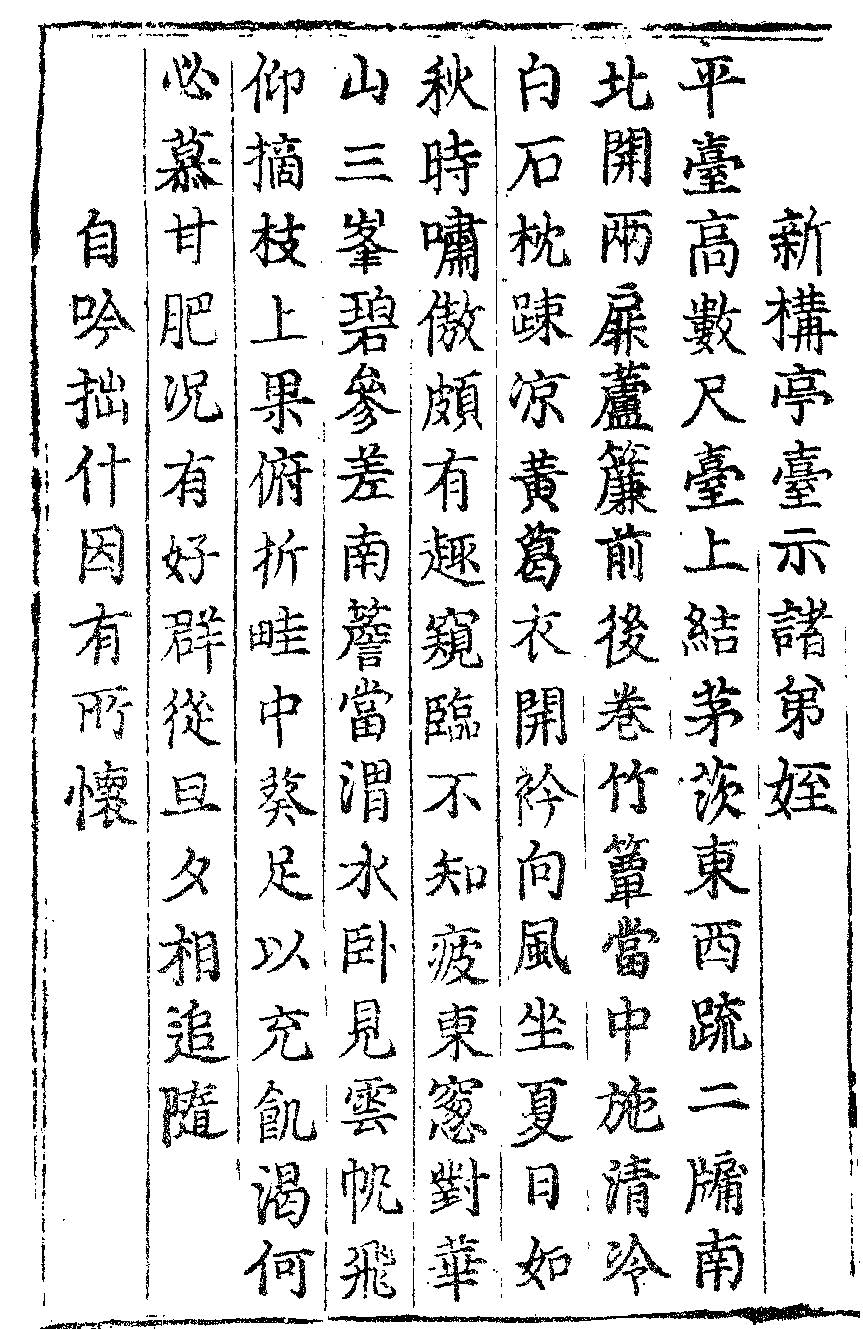 新構亭臺示諸弟姪
平臺高數尺臺上結茅茨東西疏二牖南
北開兩扉蘆簾前後卷竹簟當中施清冷
白石枕踈凉黃葛衣開衿向風坐夏日如
秋時嘯傲頗有趣窺臨不知疲東窓對華
山三峯碧參差南簷當渭水卧見雲帆飛
仰摘枝上果俯折畦中葵足以充飢渴何
必慕甘肥况有好群從旦夕相追隨
自吟拙什因有所懷